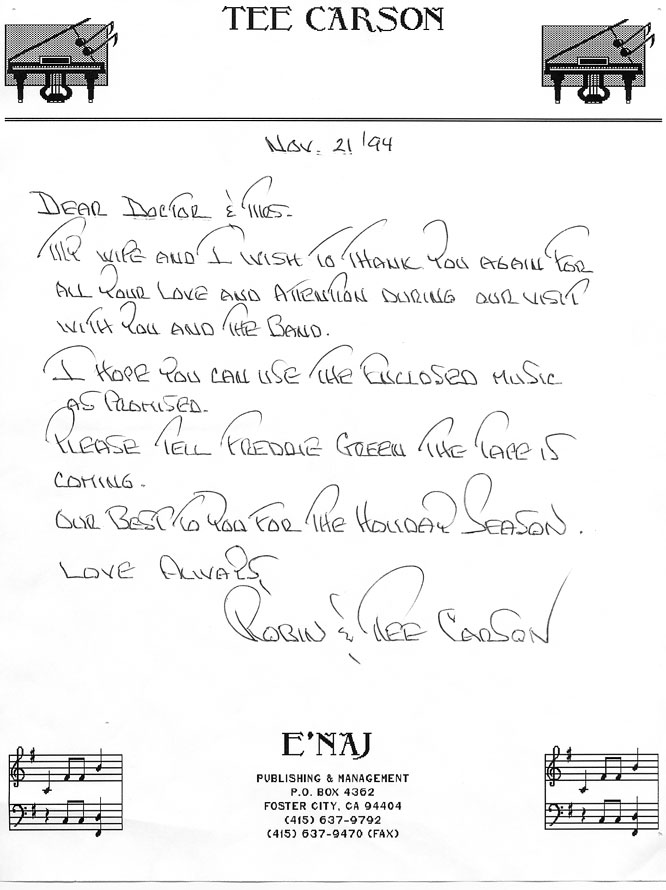 TEE CARSON
Nov. 21 '94
DEAR DOCTOR & MRS.
MY WIFE AND I WISH TO THANK YOU AGAIN FOR
ALL YOUR LOVE AND ATTENTION DURING OUR VISIT
WITH YOU AND THE BAND.
I HOPE YOU CAN USE THE ENCLOSED MUSIC
AS PROMISED.
PLEASE TELL FREDDIE GREEN THE TAPE IS
COMING.
OUR BEST TO YOU FOR THE HOLIDAY SEASON.
LOVE ALWAYS,
ROBIN & TEE CARSON
E'NAJ
PUBLISHING & MANAGEMENT
P.O. BOX 4362
FOSTER CITY, CA 94404
(415) 637-9792
(415) 637-9470 (FAX)